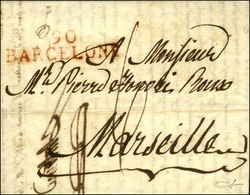 90
BARCELONE
A Monsieur
Mr. Pierre honoré Roux
Marseille